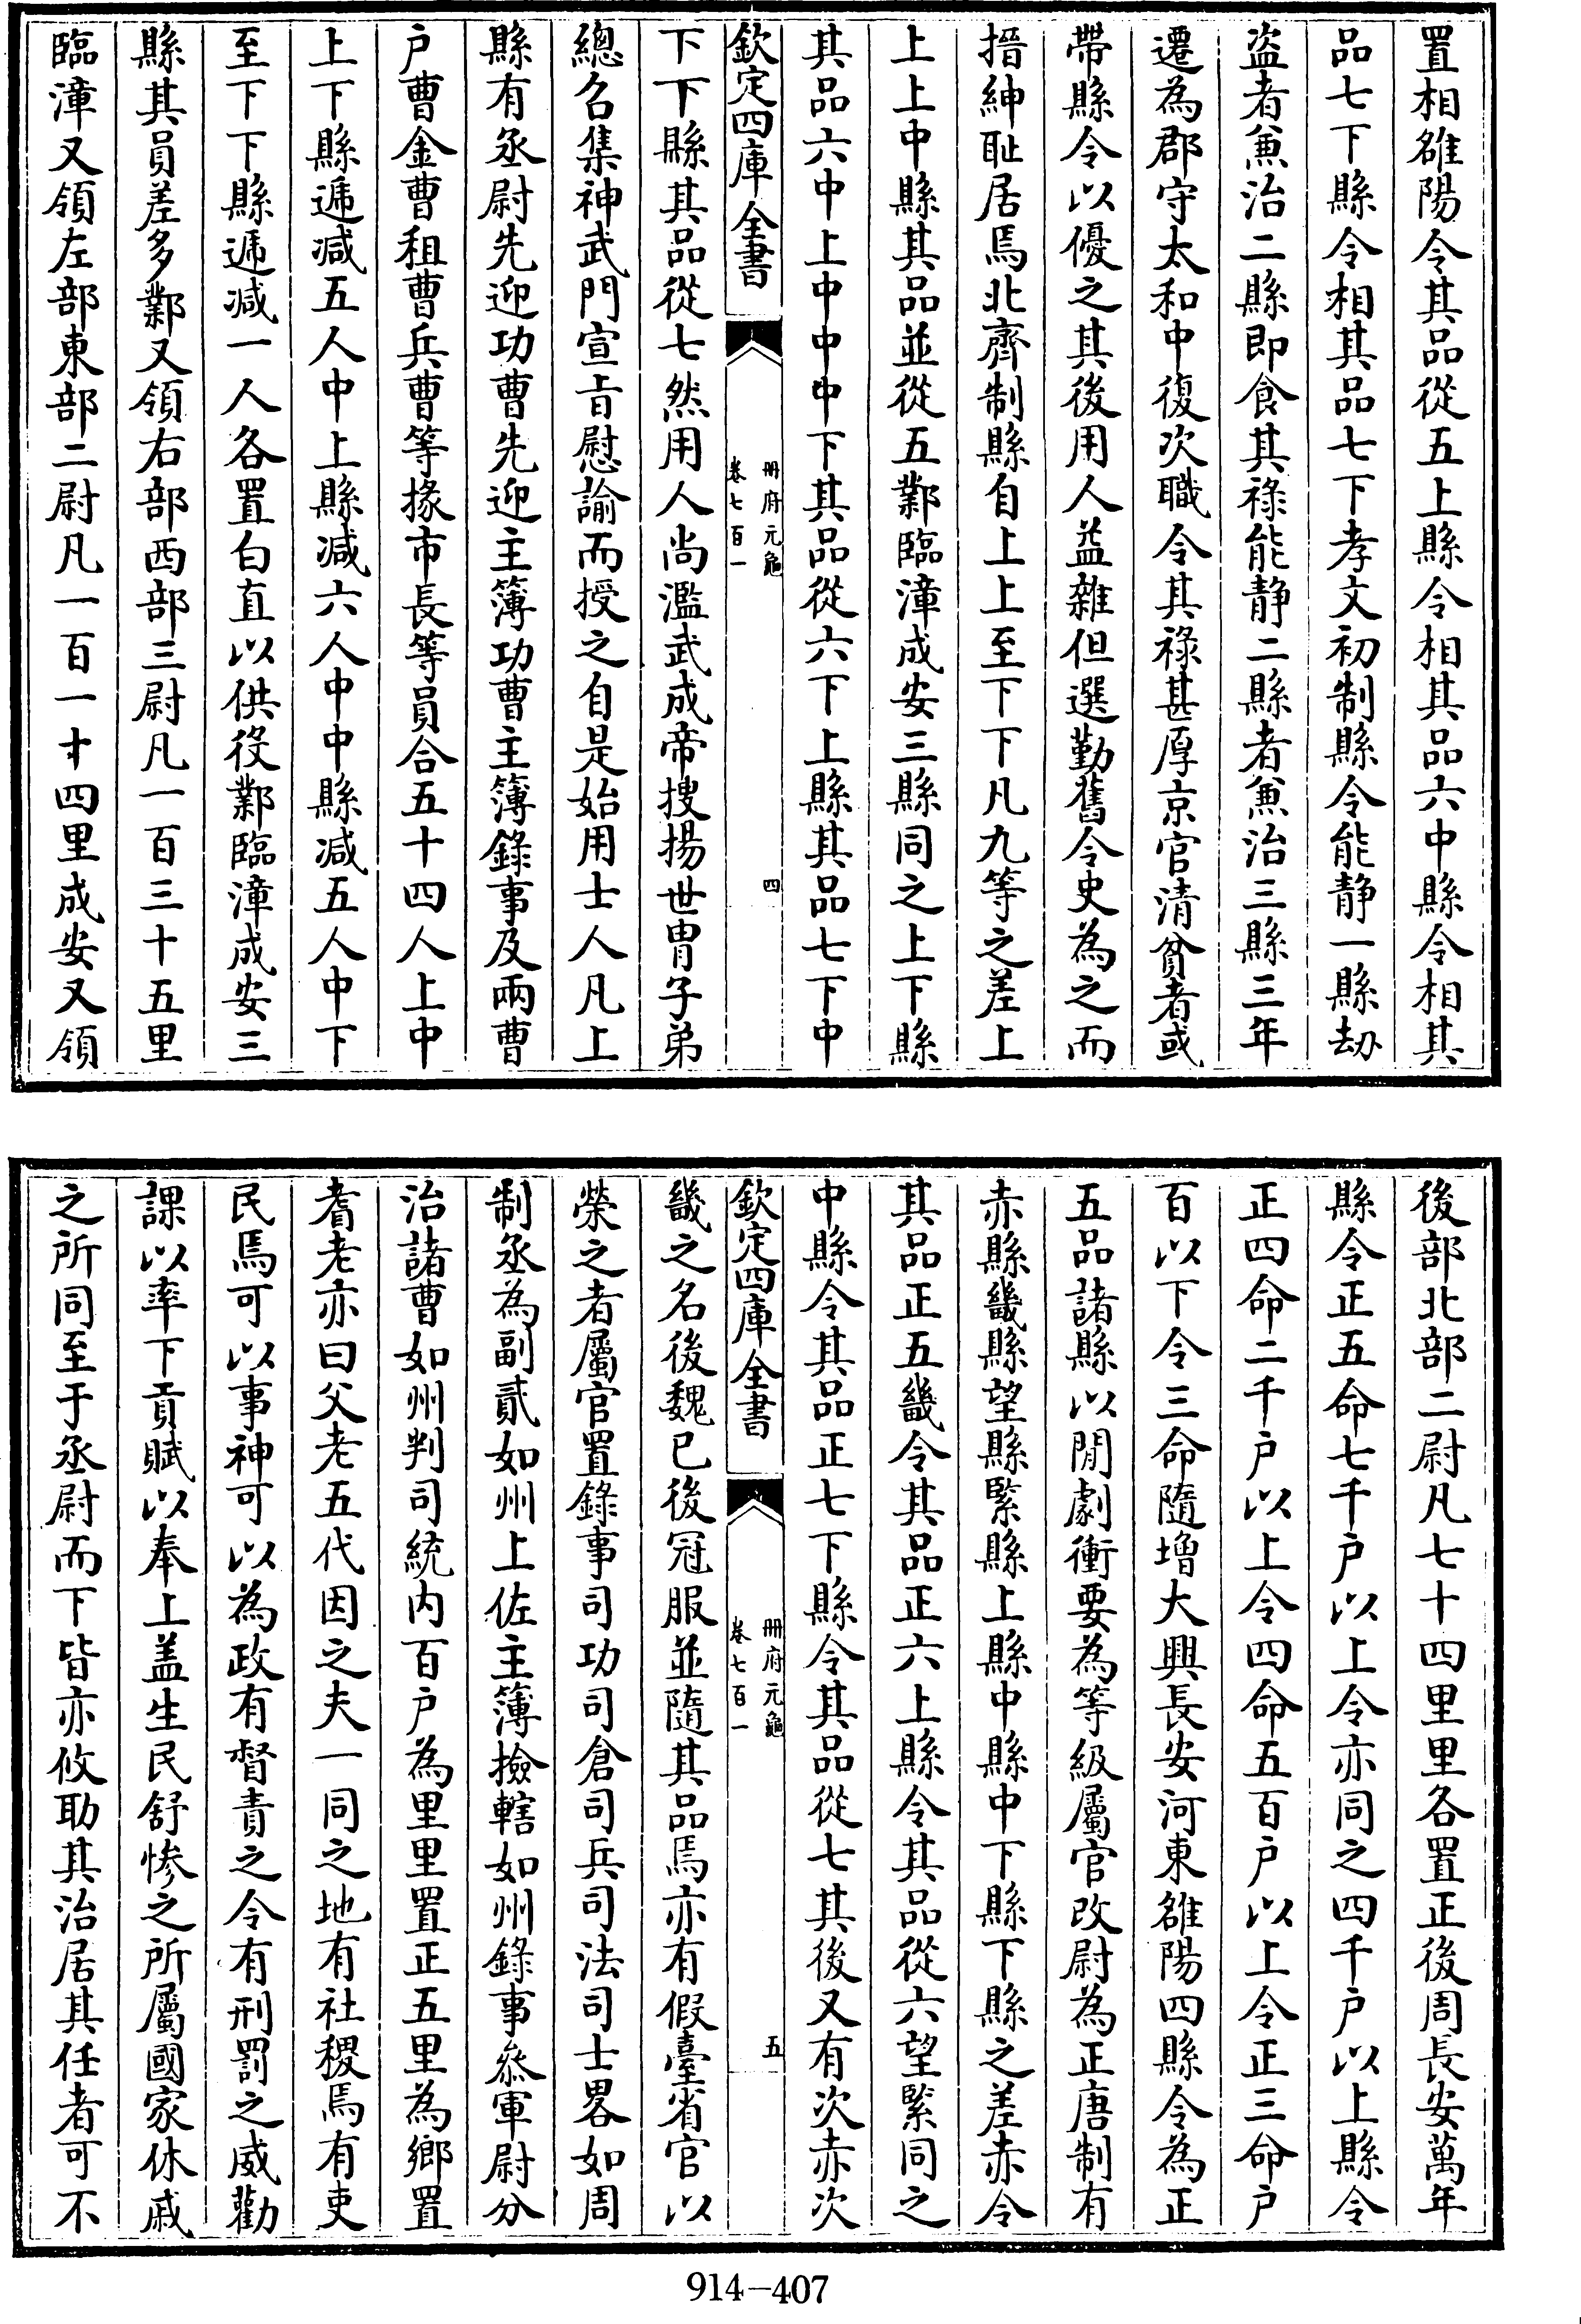 置相雒陽令其品從五上縣令相其品六中縣令相其
品七下縣令相其品七下孝文初制縣令能静一縣劫
盗者兼治二縣即食其祿能静二縣者兼治三縣三年
遷為郡守太和中復次職令其祿甚厚京官清貧者或
帶縣令以優之其後用人益雜但選勤舊令史為之而
搢紳耻居焉北齊制縣自上上至下下凡九等之差上
上上中縣其品並從五鄴臨漳成安三縣同之上下縣
其品六中上中中中下其品從六下上縣其品七下中
欽定四庫全書
冊府元龜
卷七百一
四
下下縣其品從七然用人尚濫武成帝搜揚世胄子弟
總名集神武門宣㫖慰諭而授之自是始用士人凡上
縣有丞尉先迎功曹先迎主簿功曹主簿錄事及兩曹
户曹金曹租曹兵曹等掾市長等員合五十四人上中
上下縣遞减五人中上縣减六人中中縣减五人中下
至下下縣遞减一人各置白直以供役鄴臨漳成安三
縣其員差多鄴又領右部西部三尉凡一百三十五里
臨漳又領左部東部二尉凡一百一十四里成安又領
後部北部二尉凡七十四里里各置正後周長安萬年
縣令正五命七千户以上令亦同之四千户以上縣令
正四命二千户以上令四命五百户以上令正三命户
百以下令三命隨增大興長安河東雒陽四縣令為正
五品諸縣以閒劇衝要為等級屬官改尉為正唐制有
赤縣畿縣望縣緊縣上縣中縣中下縣下縣之差赤令
其品正五畿令其品正六上縣令其品從六望緊同之
中縣令其品正七下縣令其品從七其後又有次赤次
欽定四庫全書
冊府元龜
卷七百一
五
畿之名後魏已後冠服並隨其品焉亦有假臺省官以
榮之者屬官置錄事司功司倉司兵司法司士畧如周
制丞為副貳如州上佐主簿撿轄如州錄事叅軍尉分
治諸曹如州判司統内百户為里里置正五里為鄉置
耆老亦曰父老五代因之夫一同之地有社稷焉有吏
民焉可以事神可以為政有督責之令有刑罰之威勸
課以率下貢賦以奉上盖生民舒惨之所屬國家休戚
之所同至于丞尉而下皆亦攸助其治居其任者可不
914-407